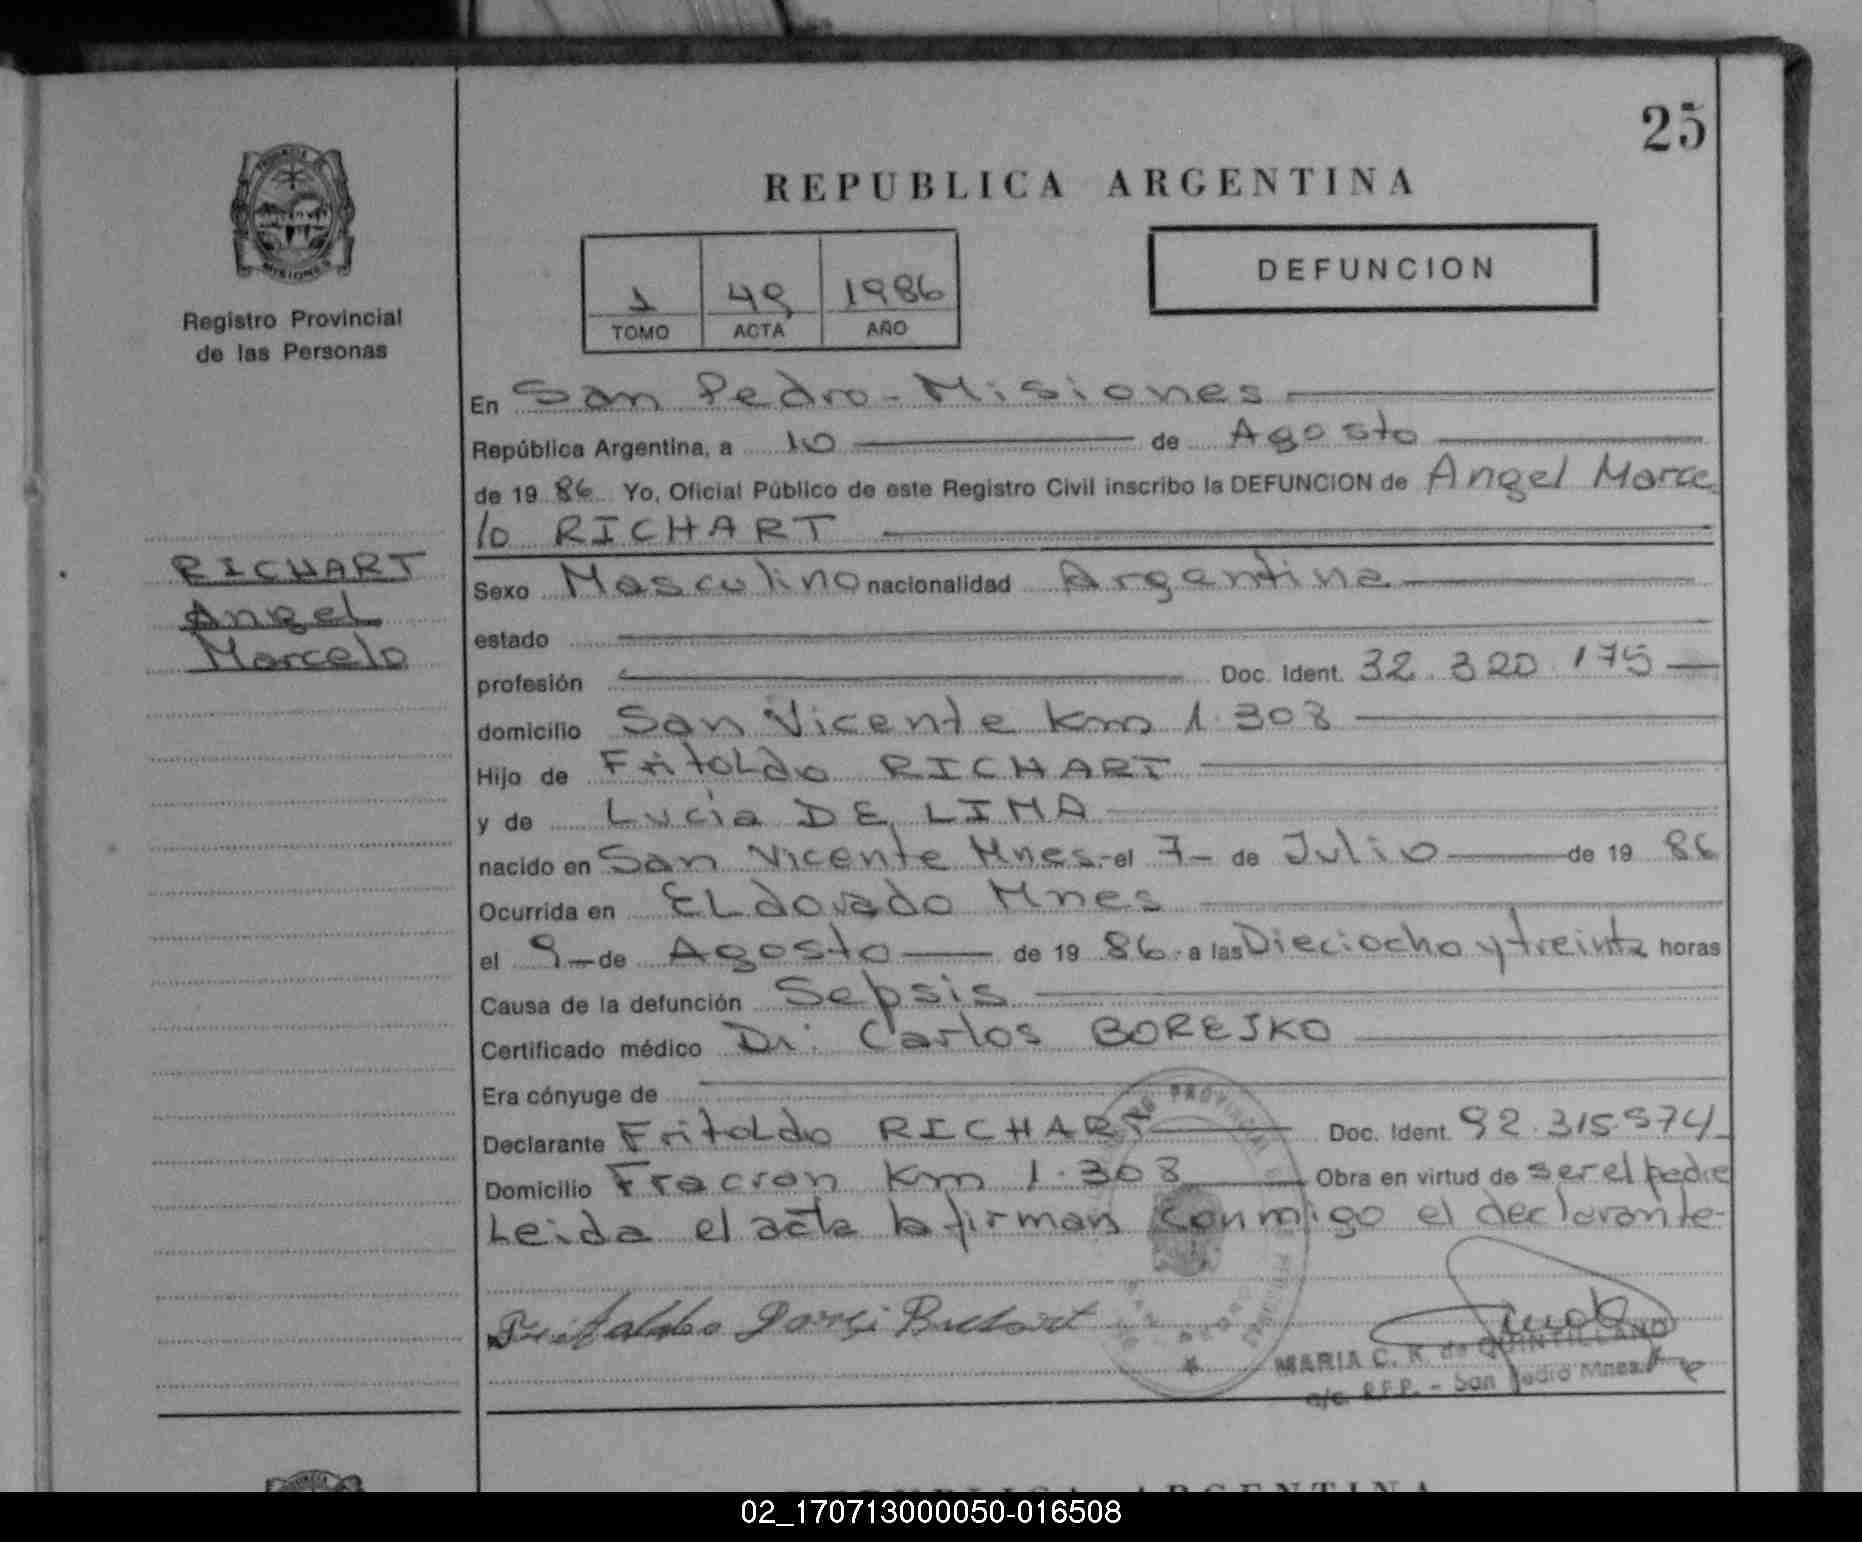 25
PROVINCIA DE
MISIONES
Registro Provincial
de las Personas
REPUBLICA ARGENTINA
1 49 1986
TOMO ACTA AÑO
DEFUNCION
RICHART
Angel
Marcelo
En San Pedro - Misiones
República Argentina, a 10 de Agosto
de 19 86 Yo, Oficial Público de este Registro Civil inscribo la DEFUNCION de Angel Marce
lo RICHART
Sexo Masculino nacionalidad Argentina
estado
profesión Doc. Ident. 32.320.175
domicilio San Vicente Km 1.308
Hijo de Fritoldo RICHART
y de Lucia DE LIMA
nacido en San Vicente Mnes.- el 7- de Julio de 19 86
Ocurrida en ELdorado Mnes
el 9- de Agosto de 19 86. a las Dieciocho y treinta horas
Causa de la defunción Sepsis
Certificado médico Dr. Carlos BOREJKO
Era cónyuge de
Declarante Fritoldo RICHART Doc. Ident. 92.315.974
Domicilio Fracran Km 1.308 Obra en virtud de ser el padre
Leida el acta la firman conmigo el declarante-
MARIA C. R. de QUINTILLANO
a/c. R.P.P. - San Pedro Mnes.
REPUBLICA ARGENTINA
02_170713000050-016508